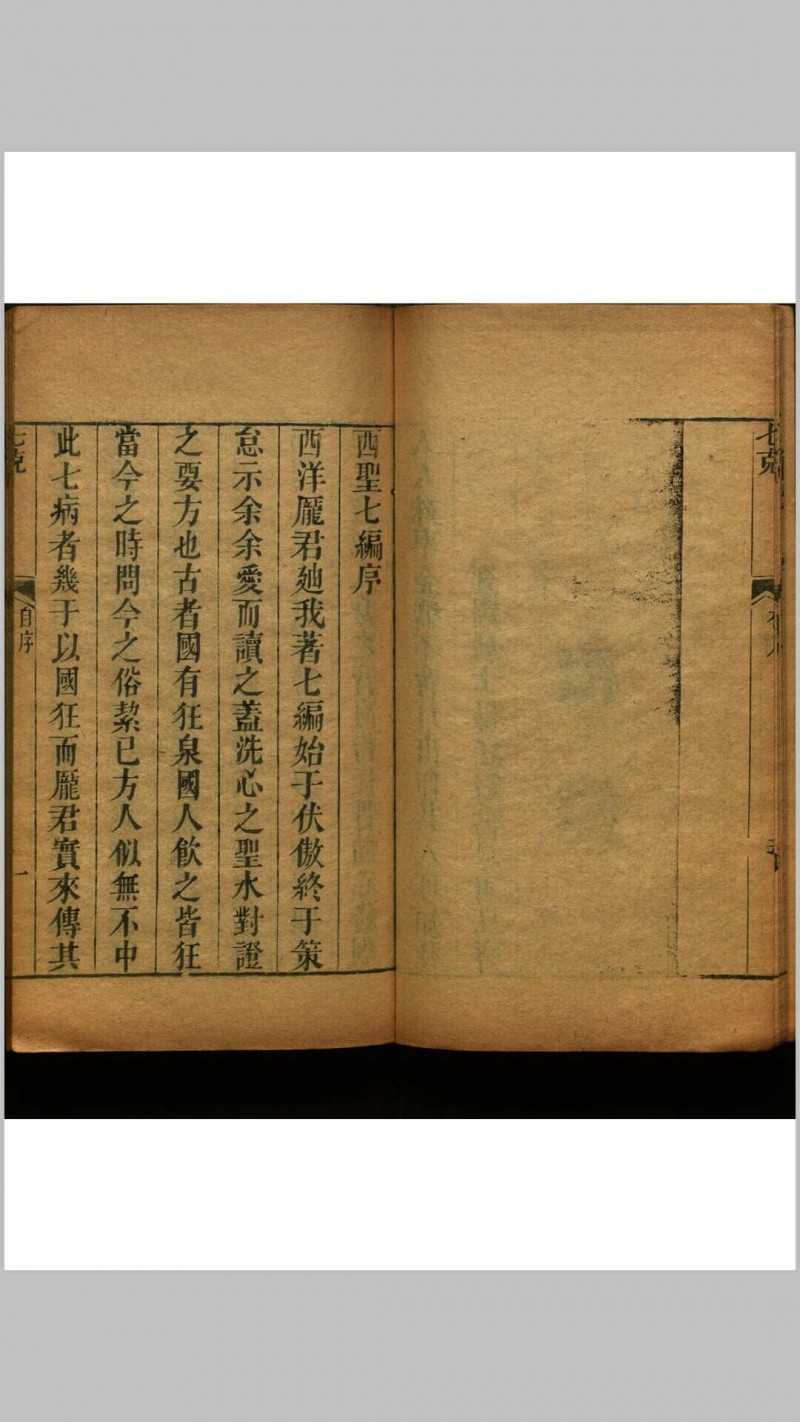 七克
西聖七編序
西洋龐君廸我著七編始于伏傲終于策
怠示余余愛而讀之蓋洗心之聖水對證
之要方也古者國有狂泉國人飲之皆狂
當今之時問今之俗絜已方人似無不中
此七病者幾于以國狂而龐君實來傳其
七克
自序
一